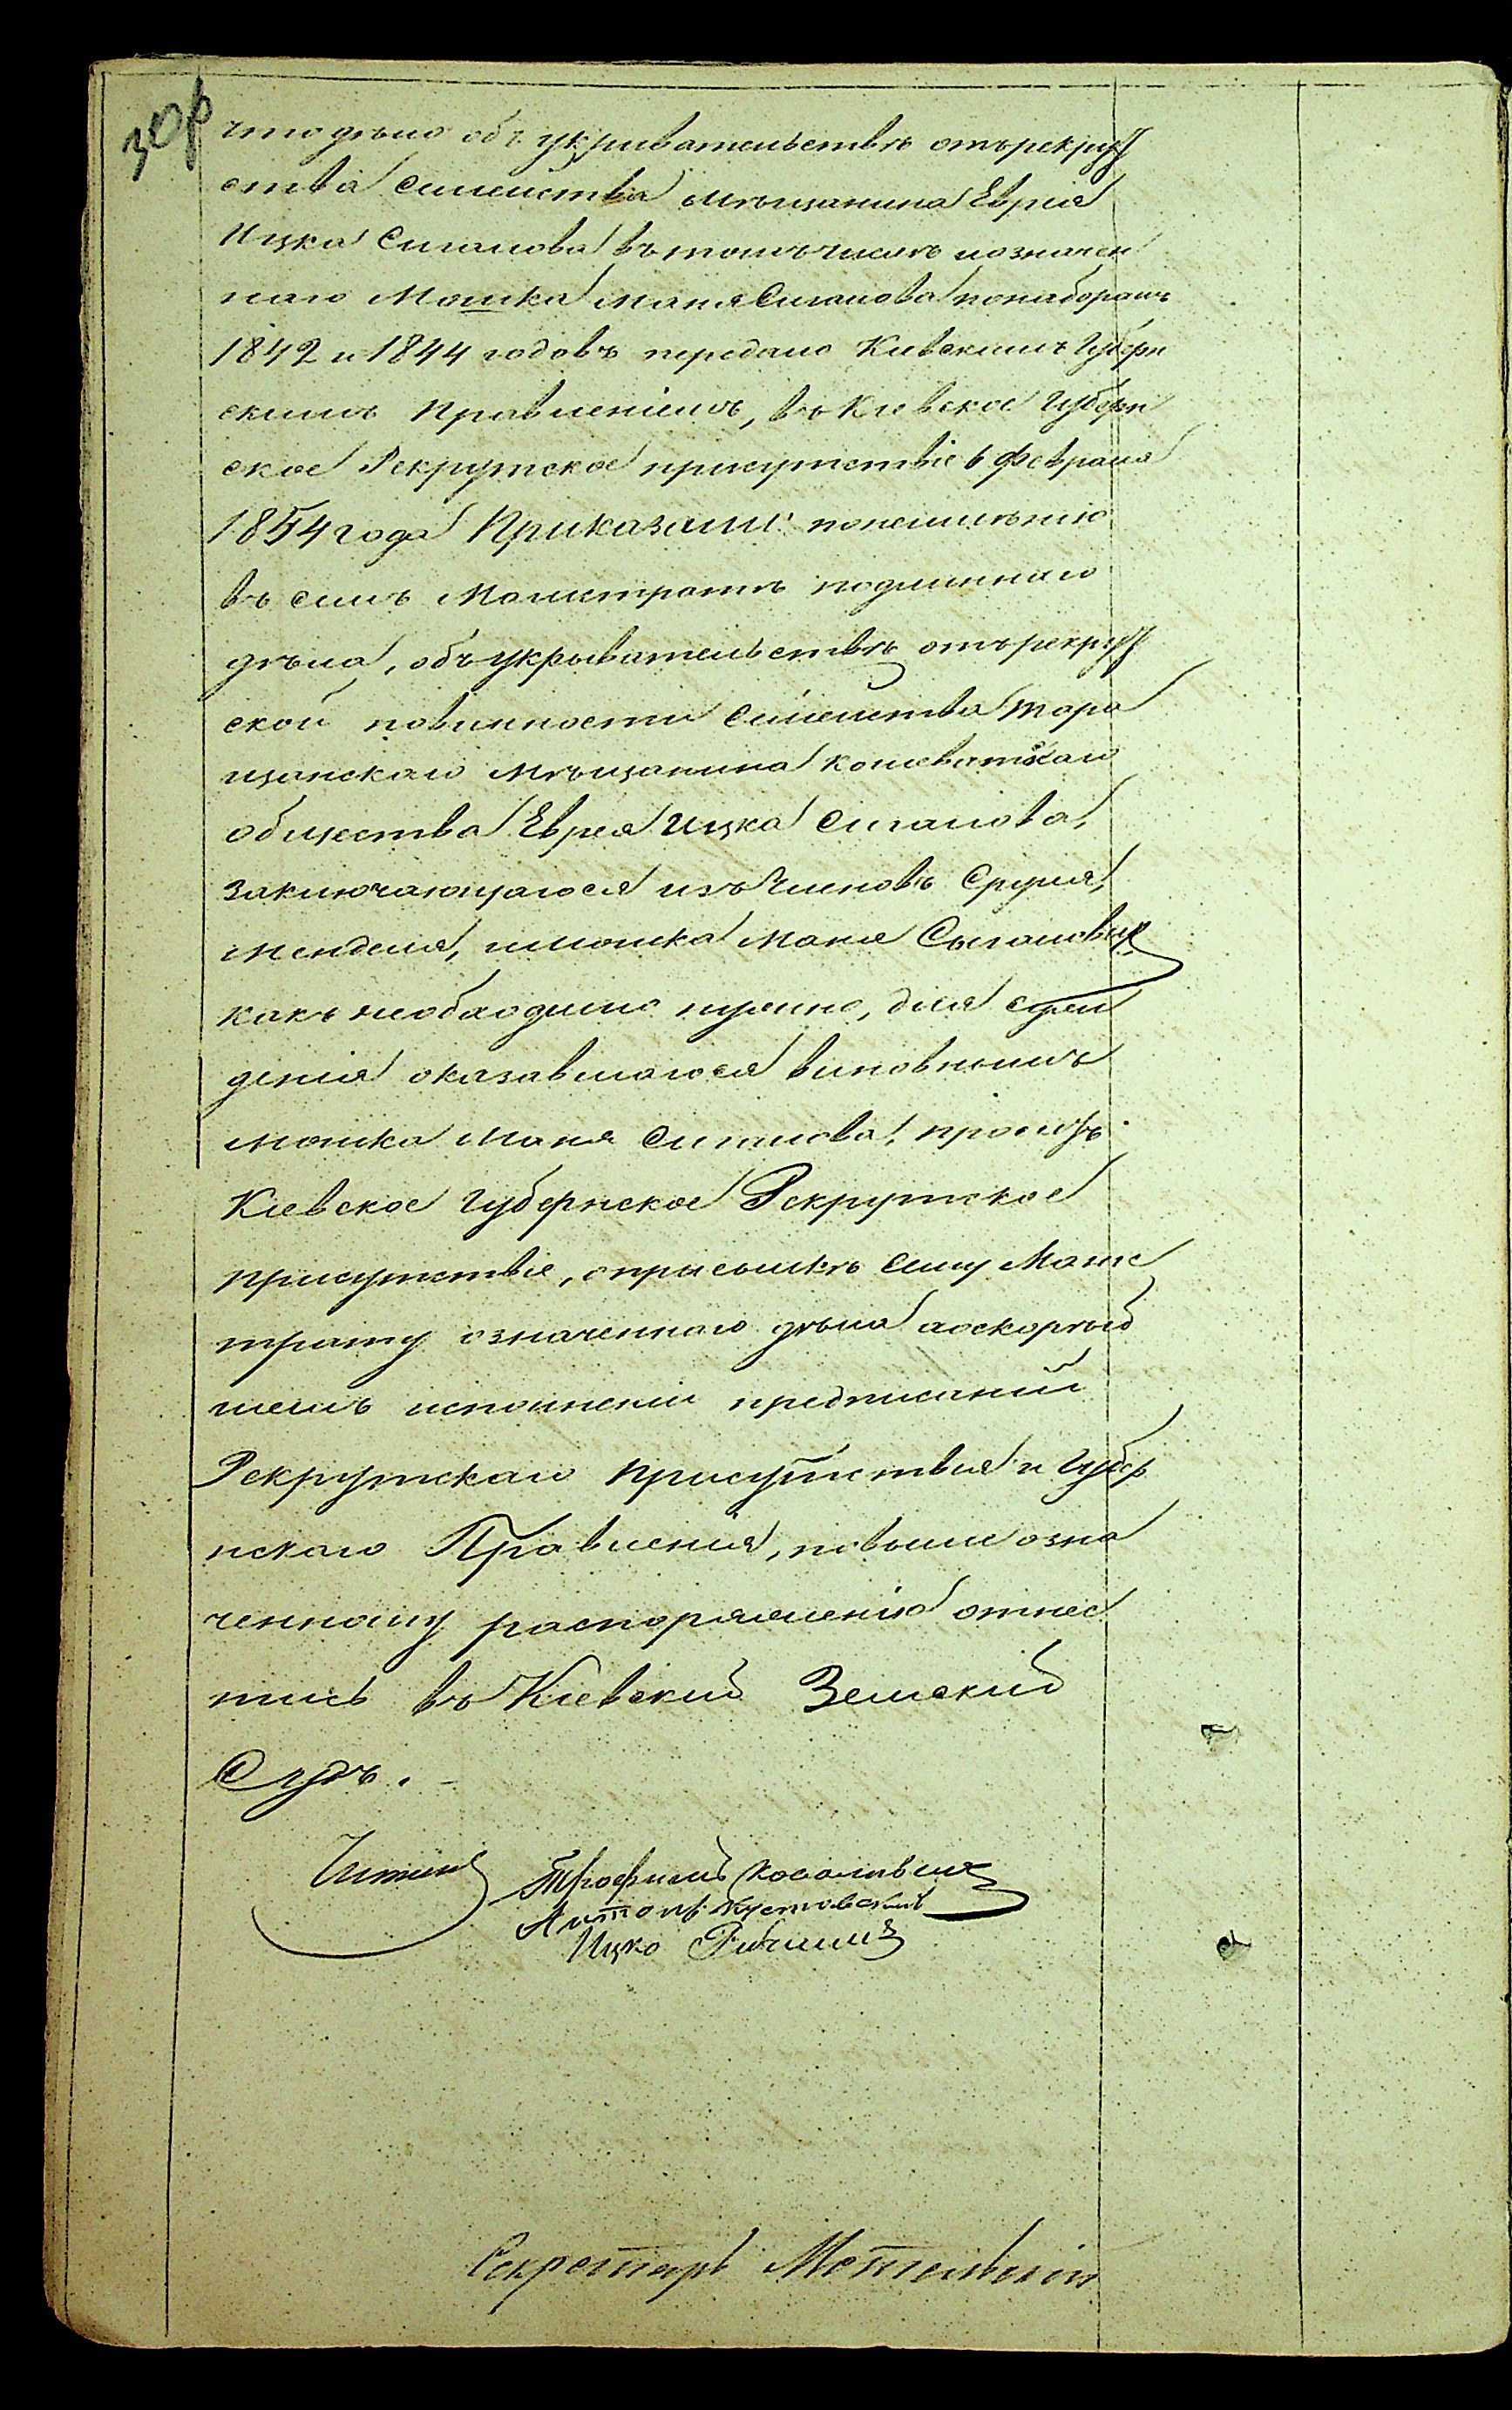 что дѣло объ укривательствѣ отъ рекрут
ства семейства мѣщанина Еврея
Ицка Сигалова въ томъ числѣ и означен
наго Мошка Маня Сигалова по наборамъ
1842 и 1844 годовъ передано Кіевскимъ Губерн
скимъ Правленіемъ, въ Кіевское Губерн
ское Рекрутское присутствіе 6 Февраля
1854 года Приказали: по неимѣнію
въ семъ Магистратѣ подлиннаго
дѣла, объ укрывательствѣ отъ рекрут
ской повинности семейства Тара
щанскаго мѣщанина Кошеватскаго
общества Еврея Ицка Сигалова,
заключающагося изъ Членовъ Сруля,
Менделя, и Мошка Маня Сыгаловых
какъ необходимо нужно, для суж
денія оказавшагося виновнымъ
Мошка Маня Сигалова, просить
Кіевское Губернское Рекрутское
присутствіе, о присылкѣ сему Маги
страту означеннаго дѣла а о скорѣй
шемъ исполненіи предписаній
Рекрутскаго Присутствия и Губер
нскаго Правленія, по выше озна
ченному распоряженію отнес
тись въ Кіевский Земский
Судъ. -
Трофимъ
Антонъ Кустовский
Ицко
Секретарь